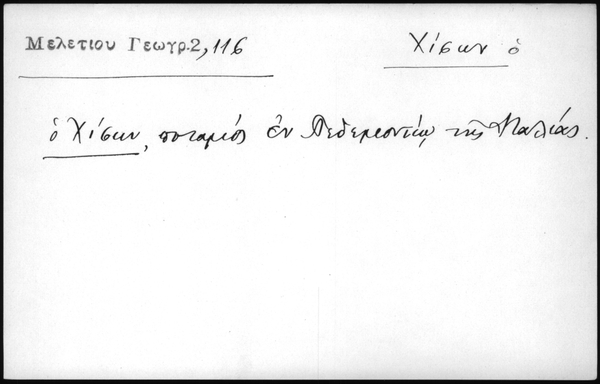 Μελετίου Γεωγρ.2,116
Χίσων ὁ
ὁ Χίσων, ποταμὸς ἐν Πεδεμοντίῳ τῆς Ἰταλίας.